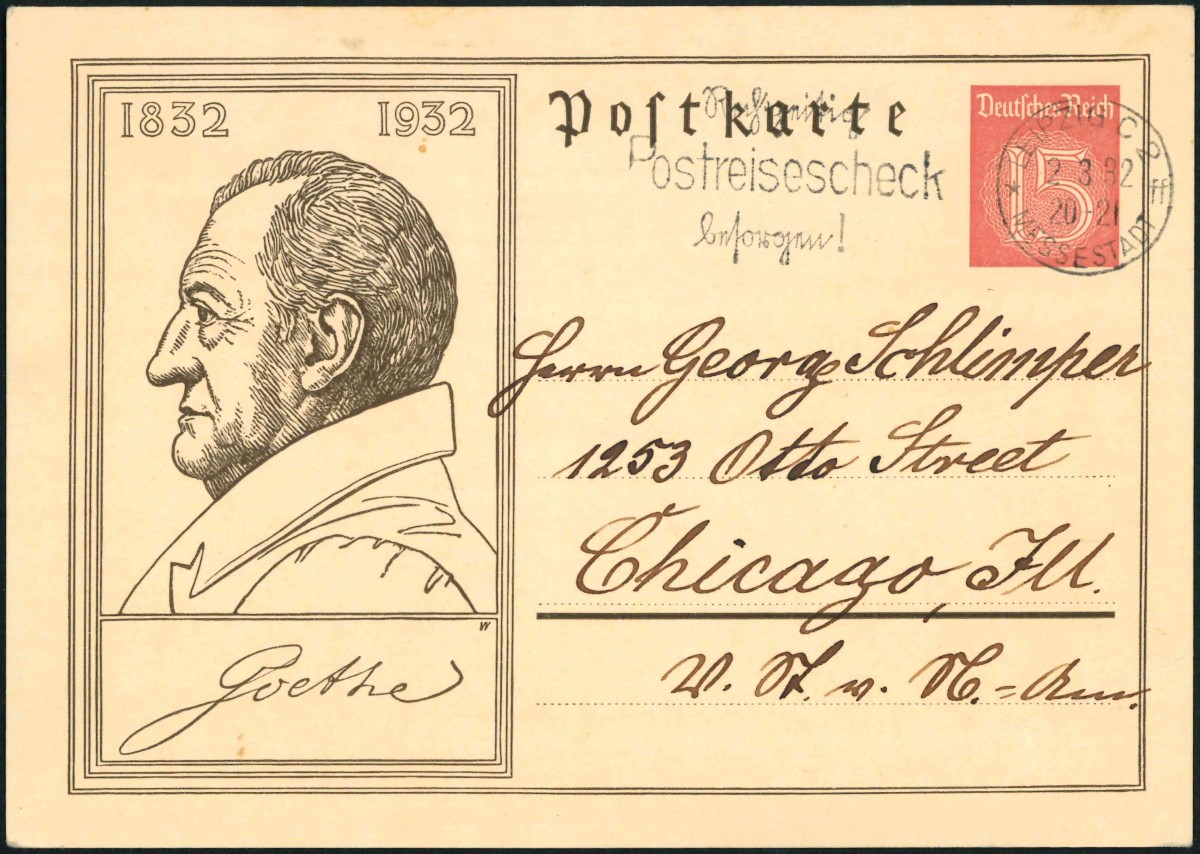 1832 1932
Postkarte
Deutsches Reich
15
Rechtzeitig
Postreisescheck
besorgen!
LEIPZIG C2
* 2.3.32 ff
20-21
MESSESTADT
Herrn Georg Schlimper
1253 Otto Street
Chicago, Ill.
V. St. v. N.=Am.
W
Goethe